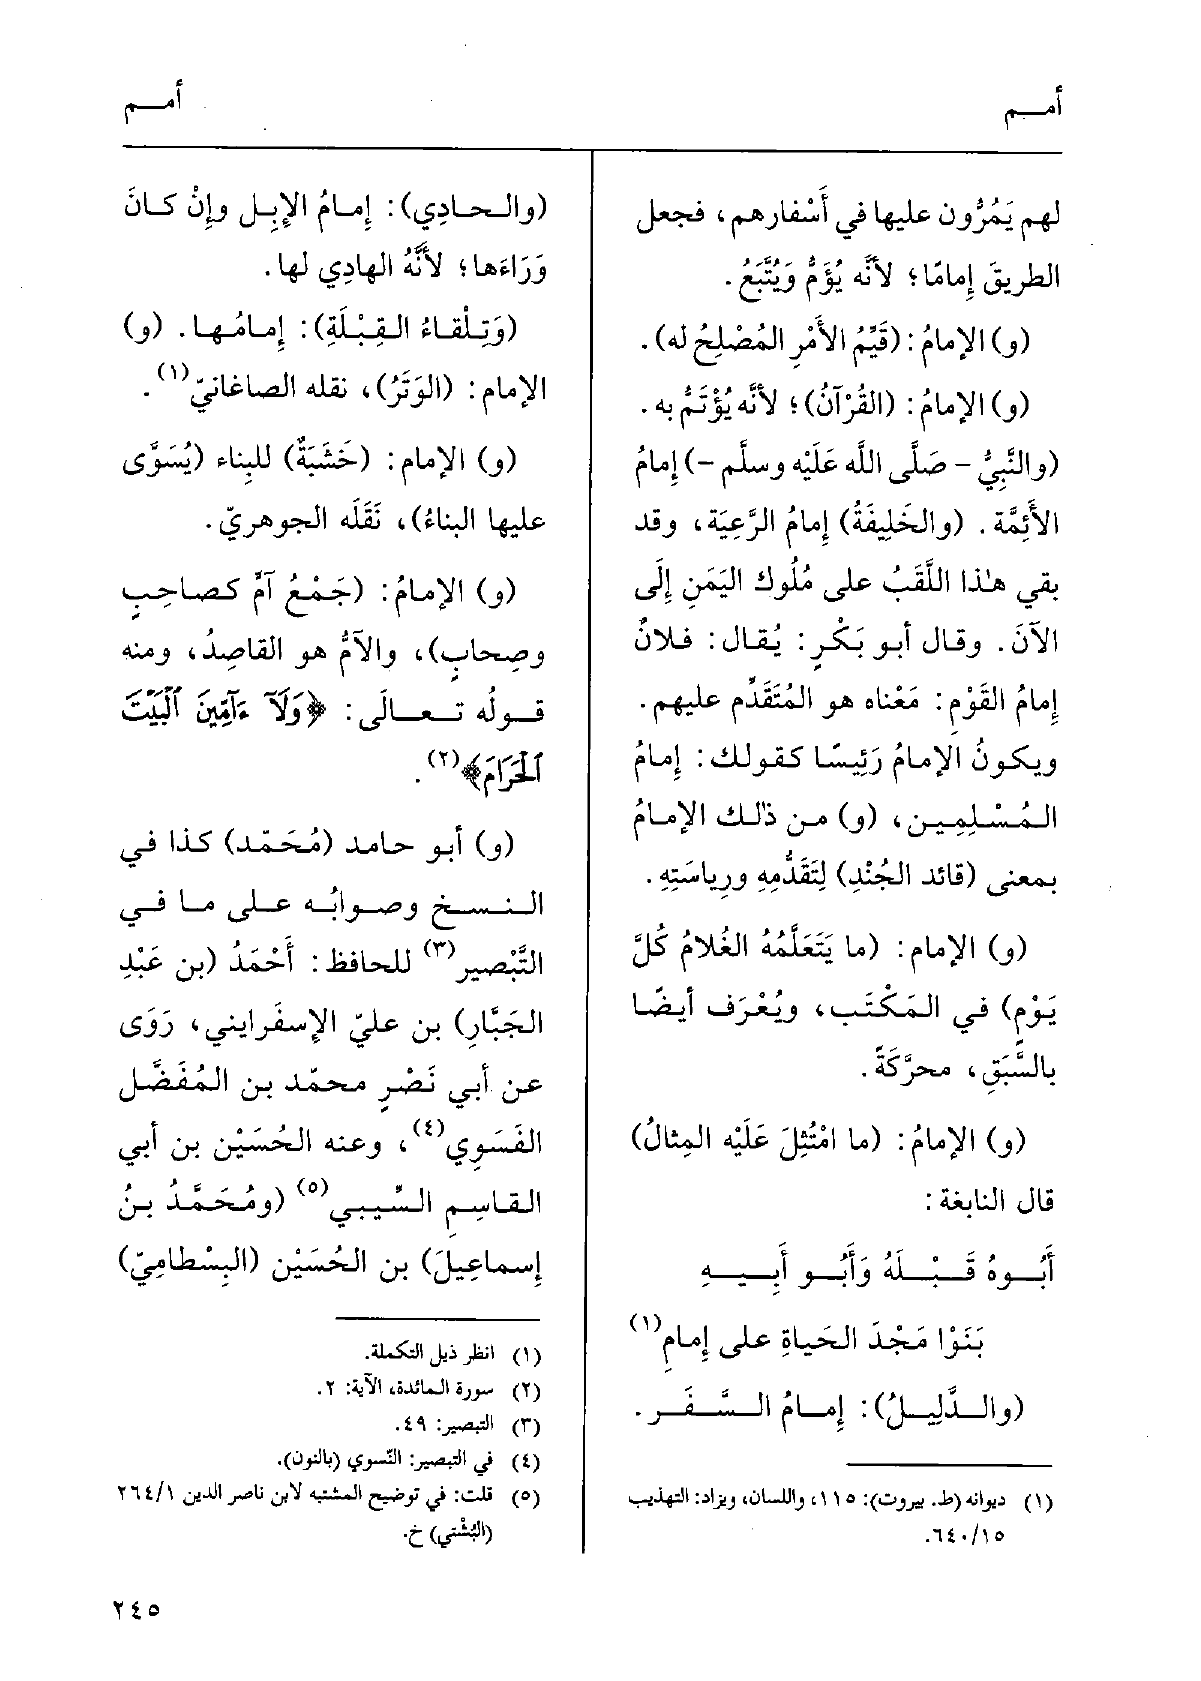 أمـم
أمـم
لهم يَمُرُّون عليها في أَسْفارهم، فجعل
الطريقَ إِمامًا؛ لأنَّه يُؤَمُّ وَيُتَّبَعُ.
(و) الإمامُ: (قَيِّمُ الأَمْرِ المُصْلِحُ له).
(و) الإمامُ: (القُرْآنُ)؛ لأنَّه يُؤْتَمُّ به.
(والنَّبِيُّ - صَلَّى اللّه عَلَيْه وسلَّم -) إِمامُ
الأَئِمَّة. (والخَلِيفَةُ) إِمامُ الرَّعِيَّة، وقد
بقي هٰذا اللَّقَبُ على مُلُوك اليَمَنِ إِلَى
الآنَ. وقال أبو بَكْرٍ: يُقال: فلانٌ
إِمامُ القَوْمِ: مَعْناه هو المُتَقَدِّم عليهم.
ويكونُ الإمامُ رَئِيسًا كقولك: إِمامُ
المُسْلِمِين، (و) من ذٰلك الإمامُ
بمعنى (قائد الجُنْدِ) لِتَقَدُّمِهِ ورِياسَتِهِ.
(و) الإمام: (ما يَتَعَلَّمُهُ الغُلامُ كُلَّ
يَوْمٍ) في المَكْتَب، ويُعْرَف أيضًا
بالسَّبَقِ، محرَّكَةً.
(و) الإمامُ: (ما امْتُثِلَ عَلَيْه المِثالُ)
قال النابغة:
أَبُوهُ قَبْلَهُ وَأَبُو أَبِيهِ
بَنَوْا مَجْدَ الحَياةِ على إِمامِ(١)
(والدَّلِيلُ): إِمامُ السَّفَر.
(١) ديوانه (ط. بيروت): ١١٥، واللسان، ويزاد: التهذيب
١٥/ ٦٤٠.
(والحادِي): إِمامُ الإِبِل وإِنْ كانَ
وَرَاءَها؛ لأَنَّهُ الهادِي لها.
(وَتِلْقاءُ القِبْلَةِ): إِمامُها. (و)
الإمام: (الوَتَرُ)، نقله الصاغانيّ(١).
(و) الإمام: (خَشَبَةٌ) للبِناء (يُسَوَّى
عليها البناءُ)، نَقَلَه الجوهريّ.
(و) الإمامُ: (جَمْعُ آمٍّ كصاحِبٍ
وصِحابٍ)، والآمُّ هو القاصِدُ، ومنه
قولُه تعالَى: ﴿وَلَآ ءَآمِّينَ ٱلْبَيْتَ
ٱلْحَرَامَ﴾(٢).
(و) أبو حامد (مُحَمّد) كذا في
النسخ وصوابُه على ما في
التَّبْصير(٣) للحافظ: أَحْمَدُ (بن عَبْدِ
الجَبَّارِ) بن عليّ الإسفرايني، رَوَى
عن أبي نَصْرٍ محمّد بن المُفَضَّل
الفَسَوِي(٤)، وعنه الحُسَيْن بن أبي
القاسِمِ السِّيبي(٥) (ومُحَمَّدُ بنُ
إسماعِيلَ) بن الحُسَيْن (البِسْطامِيّ)
(١) انظر ذيل التكملة.
(٢) سورة المائدة، الآية: ٢.
(٣) التبصير: ٤٩.
(٤) في التبصير: النّسوي (بالنون).
(٥) قلت: في توضيح المشتبه لابن ناصر الدين ١/ ٢٦٤
(البُشْتي) خ.
٢٤٥